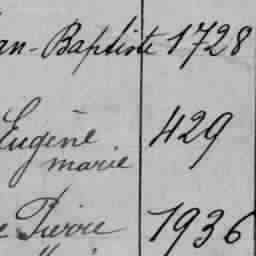 an-Baptiste 1728
Eugène 429
marie
e Pierre 1936